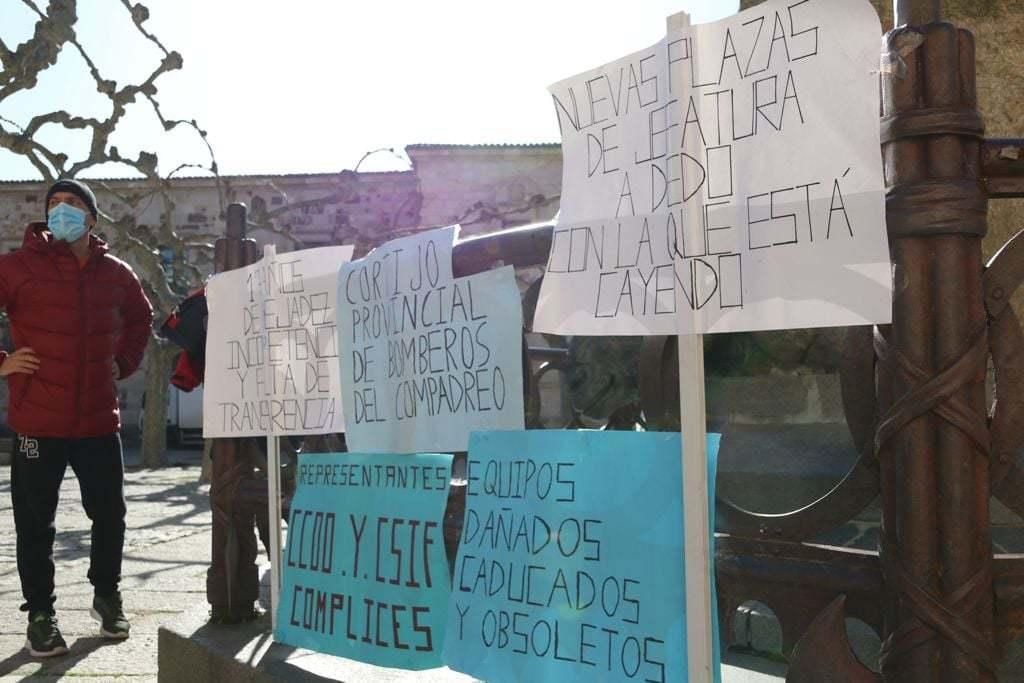 NUEVAS PLAZAS
DE JEFATURA
A DEDO
CON LA QUE ESTÁ
CAYENDO
AÑOS
DE
Y
DE
CORTIJO
PROVINCIAL
DE BOMBEROS
DEL COMPADREO
REPRESENTANTES
CCOO.Y.CSIF
COMPLICES
EQUIPOS
DAÑADOS
CADUCADOS
Y OBSOLETOS
72